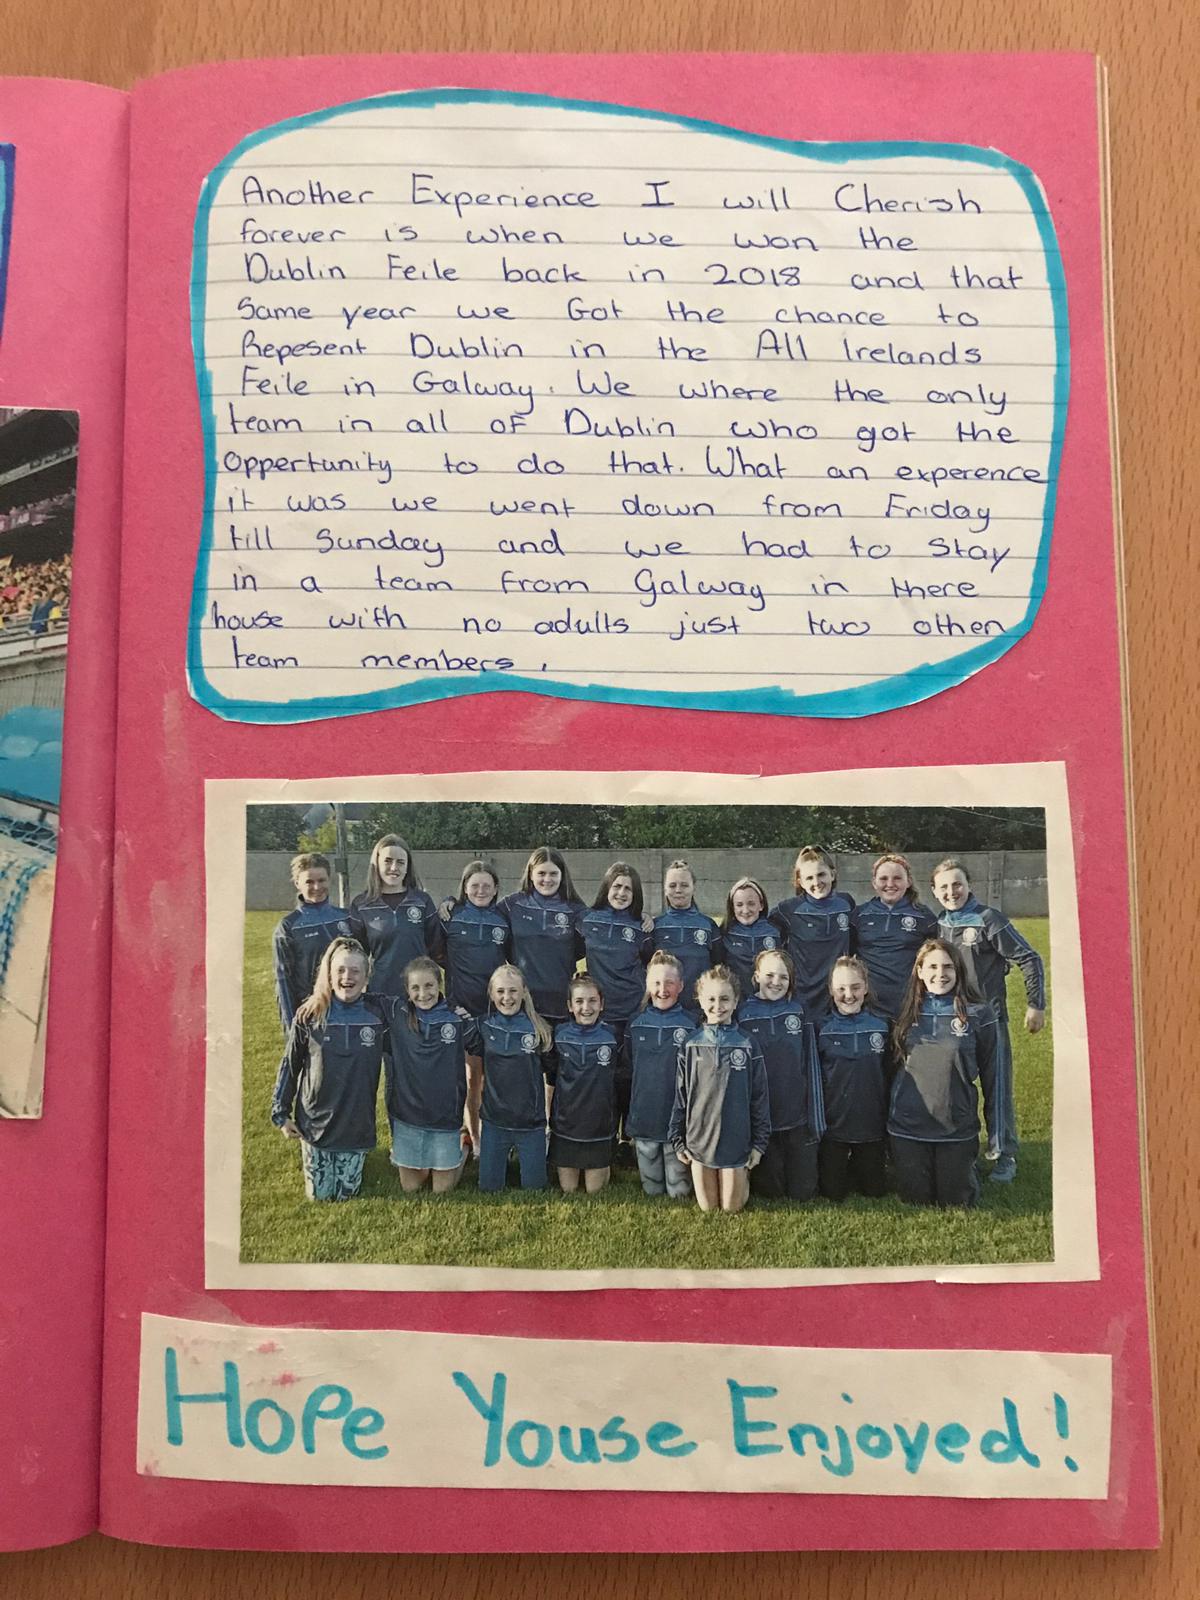 Another Experience I will Cherish
forever is when we won the
Dublin Feile back in 2018 and that
Same year we Got the chance to
Repesent Dublin in the All Irelands
Feile in Galway. We where the only
team in all of Dublin who got the
Oppertunity to do that. What an experence
it was we went down from Friday
till Sunday and we had to Stay
in a team from Galway in there
house with no adults just two other
team members.
Hope Youse Enjoyed!